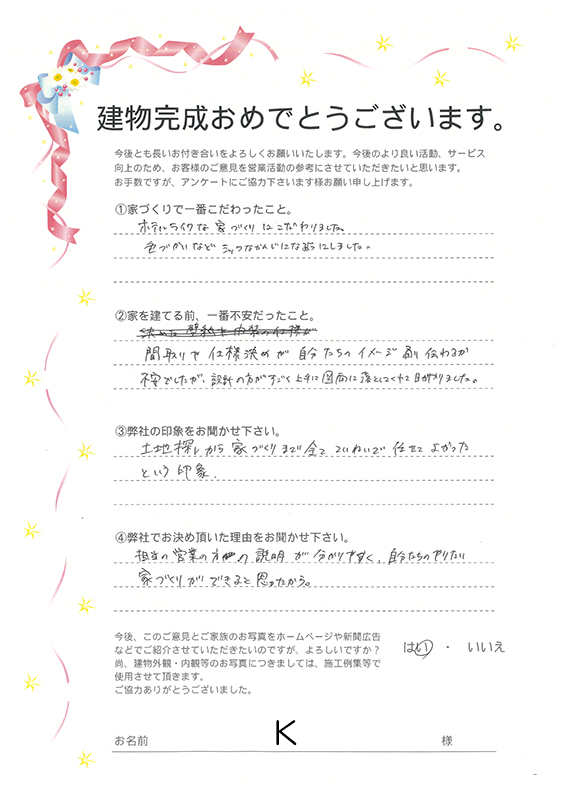 建物完成おめでとうございます。
今後とも長いお付き合いをよろしくお願いいたします。今後のより良い活動、サービス
向上のため、お客様のご意見を営業活動の参考にさせていただきたいと思います。
お手数ですが、アンケートにご協力下さいます様お願い申し上げます。
①家づくりで一番こだわったこと。
ホテルライクな家づくりにこだわりました。
色づかいなどシックなかんじになるようにしました。
②家を建てる前、一番不安だったこと。
間取りや仕様決めが自分たちのイメージ通り伝わるか
不安でしたが、設計の方がすごく上手に図面に落としてくれて助かりました。
③弊社の印象をお聞かせ下さい。
土地探しから家づくりまで全てていねいで任せてよかった
という印象。
④弊社でお決め頂いた理由をお聞かせ下さい。
担当の営業の方の説明が分かりやすく、自分たちのやりたい
家づくりができると思ったから。
今後、このご意見とご家族のお写真をホームページや新聞広告
などでご紹介させていただきたいのですが、よろしいですか？
はい ・ いいえ
尚、建物外観・内観等のお写真につきましては、施工例集等で
使用させて頂きます。
ご協力ありがとうございました。
お名前 K 様